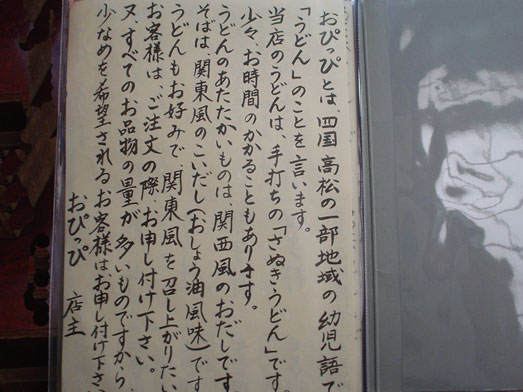 おぴっぴとは四国高松の一部地域の幼児語で
「うどん」のことを言います。
当店のうどんは、手打ちの「さぬきうどん」です
少々、お時間のかかることもあります。
うどんのあたたかいものは、関西風のおだしです
そばは、関東風のこいだし(おしょう油風味)です
うどんもお好みで関東風を召し上がりたい
お客様は、ご注文の際、お申し付け下さい。
又、すべてのお品物の量が多いものですから、
少なめを希望されるお客様はお申し付け下さ
おぴっぴ 店主